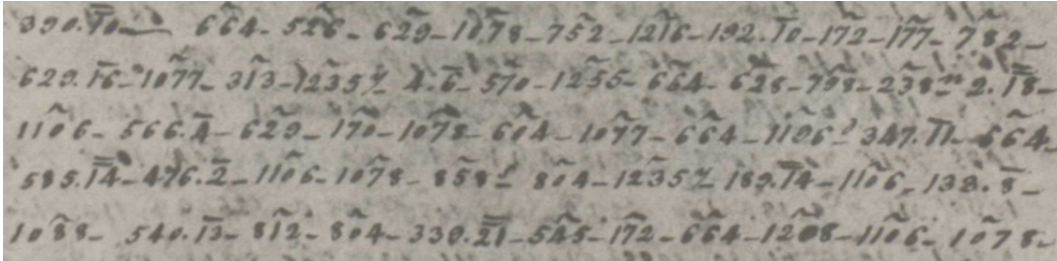 390.7̿0— 6̃64- 5̃26- 6̃29- 10̃78- 752- 12̃16- 192.1̅0- 172- 1̃77- 7̃82-
629.1̅6- 10̃77- 3̃13- 12̃35 4.6̅- 5̃70- 12̃55- 6̃64- 6̃28- 7̃98- 2̃38 2.1̿8-
11̃06- 566.4̅- 6̃29- 1̃70- 10̃78- 6̃04- 10̃77- 6̃64- 11̃06 347.1̅1- 6̃64-
585.1̿4- 476.2̅- 11̃06- 1078- 858 8̃04- 12̃35 189.1̿4- 11̃06- 138.8̅-
10̃88- 540.1̅3- 8̃12- 8̃04- 339.2̿1- 5̃45- 1̃72- 6̃64- 12̃08- 11̃06- 10̃78-